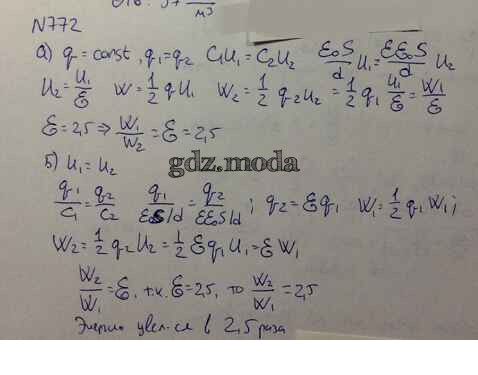 м³
N772
а) q = const, q₁=q₂ C₁U₁ = C₂U₂ ε₀S/d U₁ = εε₀S/d U₂
U₂ = U₁/ε W = 1/2 qU₁ W₂ = 1/2 q₂U₂ = 1/2 q₁ U₁/ε = W₁/ε
ε = 2,5 ⇒ W₁/W₂ = ε = 2,5
gdz.moda
б) U₁ = U₂
q₁/C₁ = q₂/C₂ q₁/ε₀S/d = q₂/εε₀S/d ; q₂ = εq₁ W₁ = 1/2 q₁ W₁;
W₂ = 1/2 q₂ U₂ = 1/2 εq₁U₁ = εW₁
W₂/W₁ = ε, т.к. ε = 2,5, то W₂/W₁ = 2,5
Энергия увел-ся в 2,5 раза